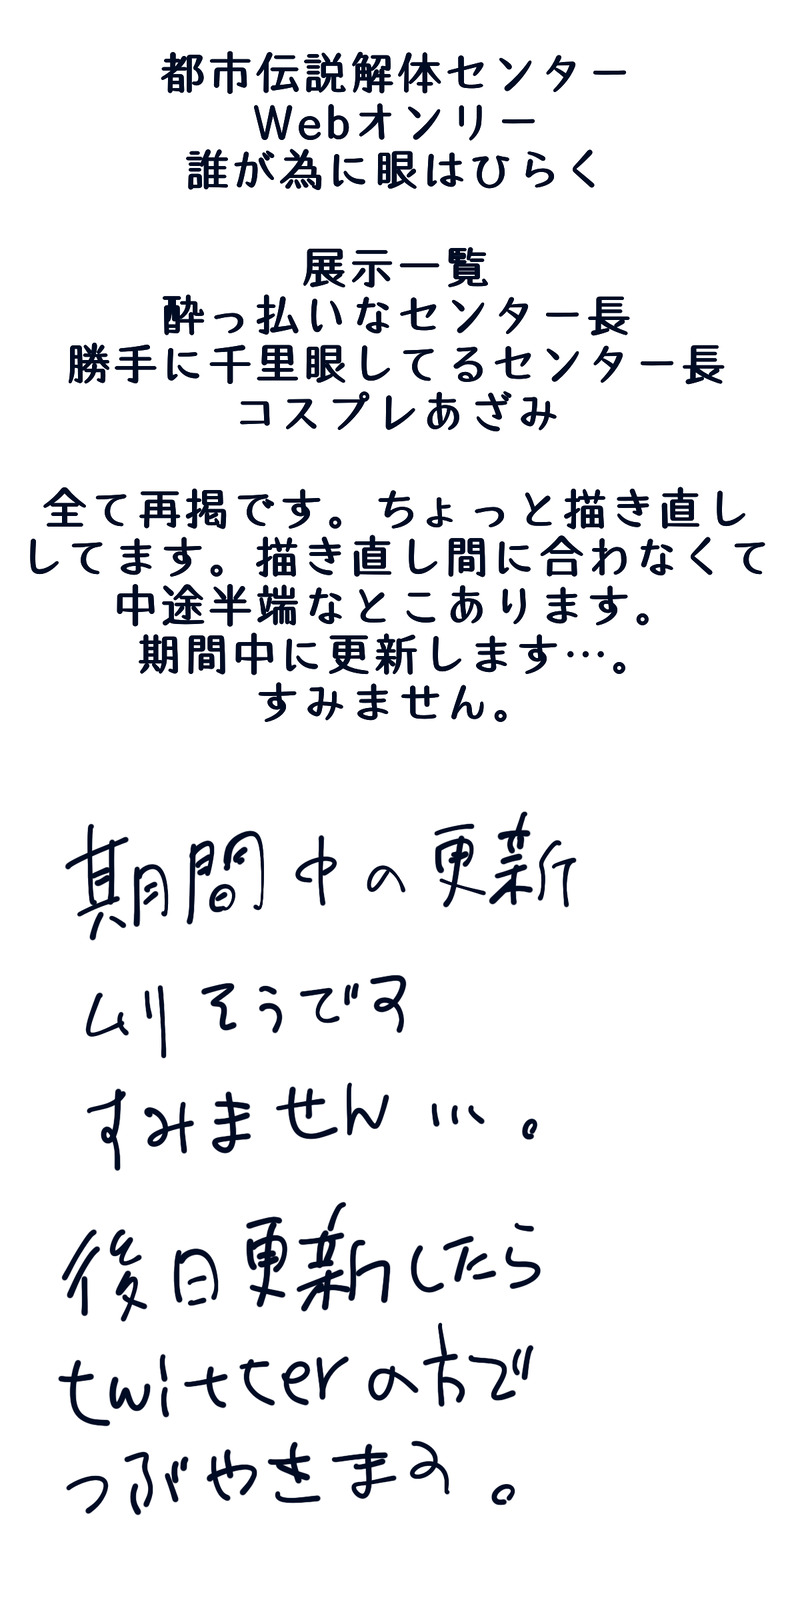 都市伝説解体センター
Webオンリー
誰が為に眼はひらく
展示一覧
酔っ払いなセンター長
勝手に千里眼してるセンター長
コスプレあざみ
全て再掲です。ちょっと描き直し
してます。描き直し間に合わなくて
中途半端なとこあります。
期間中に更新します…。
すみません。
期間中の更新
ムリそうです
すみません…。
後日更新したら
twitterの方で
つぶやきます。